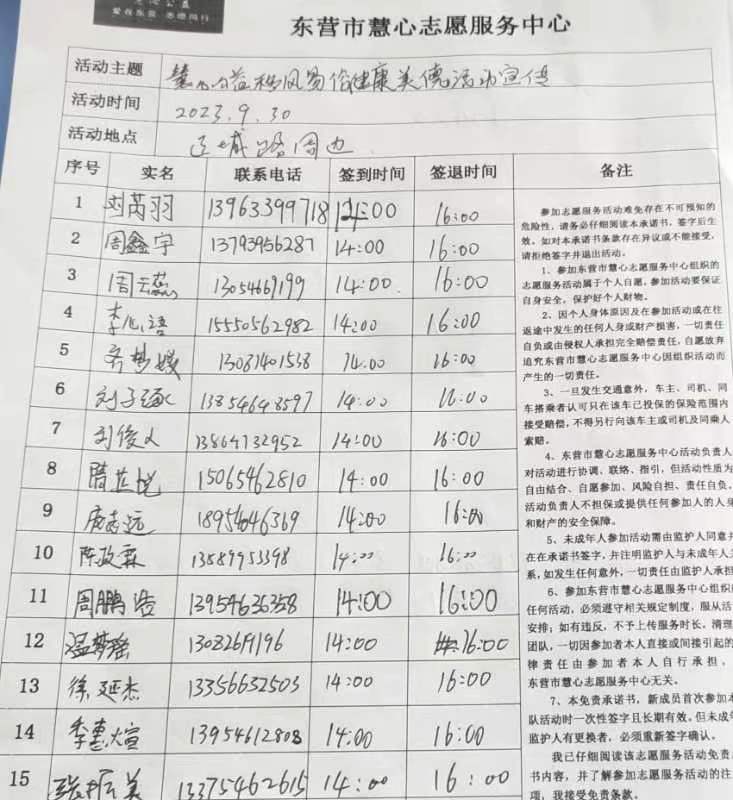 东营市慧心志愿服务中心
活动主题
健康美德活动宣传
活动时间 2023.9.30
活动地点 路周边
序号 实名 联系电话 签到时间 签退时间 备注
1 刘芮羽 13963399718 14:00 16:00
2 周鑫宇 13793956287 14:00 16:00
3 周云蕊 13054669199 14:00 16:00
4 李 语 15550562982 14:00 16:00
5 齐梦媛 13061401538 14:00 16:00
6 刘子 13854648597 14:00 16:00
7 刘俊 13864732952 14:00 16:00
8 隋芷悦 15065462810 14:00 16:00
9 志远 18954646369 14:00 16:00
10 陈政霖 13589953398 14:00 16:00
11 周鹏浩 13954636358 14:00 16:00
12 温梦瑶 14:00 16:00
13 徐延杰 13356632503 14:00 16:00
14 季惠煊 13954612808 14:00 16:00
15 张振美 13375462615 14:00 16:00
参加志愿服务活动难免存在不可预知的
危险性，请务必仔细阅读本承诺书，签字后生
效。如对本承诺书条款存在异议或不能接受，
请拒绝签字并退出活动。
1、参加东营市慧心志愿服务中心组织的
志愿服务活动属于个人自愿，参加活动要保证
自身安全，保护好个人财物。
2、因个人身体原因及在参加活动或在往
返途中发生的任何人身或财产损害，一切责任
自负或由侵权人承担完全赔偿责任，自愿放弃
追究东营市慧心志愿服务中心因组织活动而
产生的一切责任。
3、一旦发生交通意外，车主、司机、同
车搭乘者认可只在该车已投保的保险范围内
接受赔偿，不得另行向该车主或司机及同乘人
索赔。
4、东营市慧心志愿服务中心活动负责人
对活动进行协调、联络、指引，但活动性质为
自由结合、自愿参加、风险自担、责任自负，
活动负责人不担保或提供任何参加人的人身
和财产的安全保障。
5、未成年人参加活动需由监护人同意并
在在承诺书签字，并注明监护人与未成年人关
系，如发生任何意外，一切责任由监护人承担
6、参加东营市慧心志愿服务中心组织的
任何活动，必须遵守相关规定制度，服从活
安排；如有违反，不予上传服务时长，清理
团队，一切因参加者本人直接或间接引起的
律责任由参加者本人自行承担，
东营市慧心志愿服务中心无关。
7、本免责承诺书，新成员首次参加本
队活动时一次性签字且长期有效。但未成年
监护人有更换者，必须重新签字确认。
我已仔细阅读该志愿服务活动免责
书内容，并了解参加志愿服务活动的注
项，我接受免责条款。